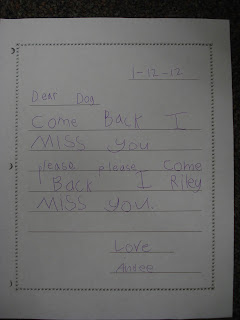 1-12-12
Dear Dog
Come Back I
MISS you
please please come
Back I Riley
MISS you.
Love